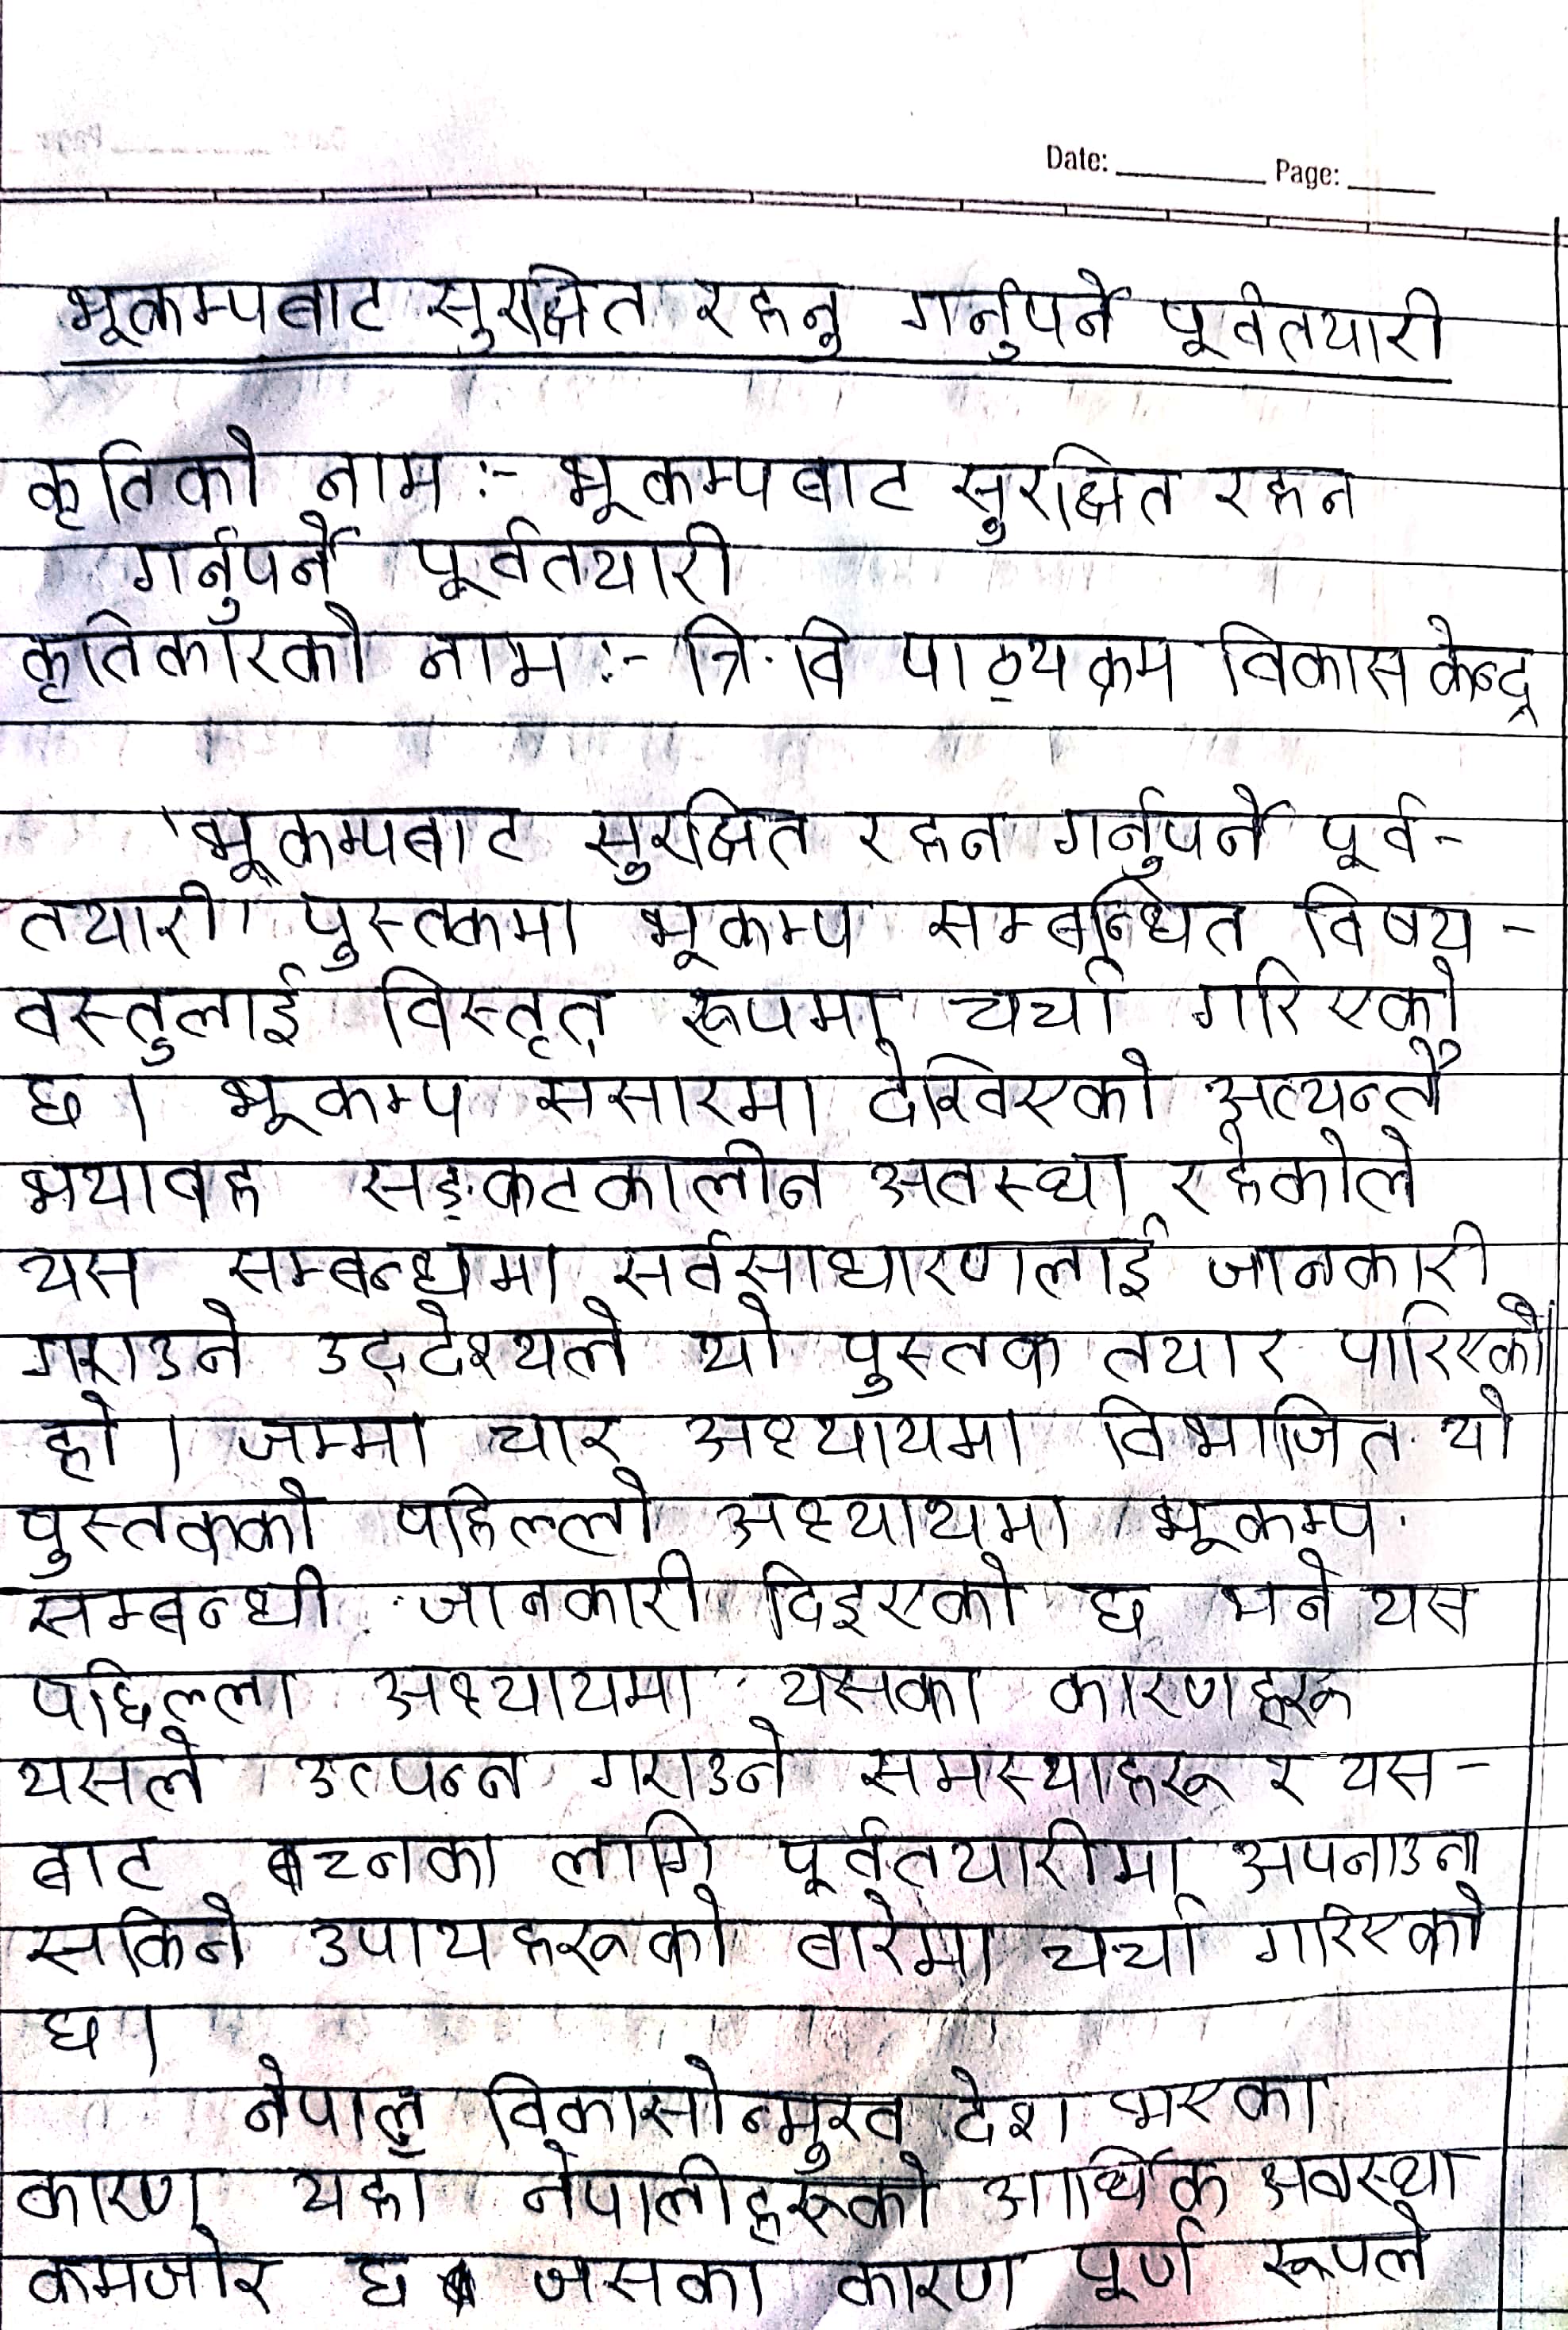 Date: ________ Page: _____
भूकम्पबाट सुरक्षित रहनु गर्नुपर्ने पूर्वतयारी
कृतिको नाम :- भूकम्पबाट सुरक्षित रहन
गर्नुपर्ने पूर्वतयारी
कृतिकारको नाम :- त्रि.वि पाठ्यक्रम विकास केन्द्र
'भूकम्पबाट सुरक्षित रहन गर्नुपर्ने पूर्व-
तयारी' पुस्तकमा भूकम्प सम्बन्धित विषय-
वस्तुलाई विस्तृत रूपमा चर्चा गरिएको
छ। भूकम्प संसारमा देखिएको अत्यन्तै
भयावह सङ्कटकालीन अवस्था रहेकोले
यस सम्बन्धमा सर्वसाधारणलाई जानकारी
गराउने उद्देश्यले यो पुस्तक तयार पारिएको
हो। जम्मा चार अध्यायमा विभाजित यो
पुस्तकको पहिल्लो अध्यायमा भूकम्प
सम्बन्धी जानकारी दिइएको छ भने यस
पछिल्ला अध्यायमा यसका कारणहरू
यसले उत्पन्न गराउने समस्याहरू र यस-
बाट बच्नका लागि पूर्वतयारीमा अपनाउन
सकिने उपायहरूको बारेमा चर्चा गरिएको
छ।
नेपाल विकासोन्मुख देश भएका
कारण यहाँ नेपालीहरूको आर्थिक अवस्था
कमजोर छ जसका कारण पूर्ण रूपले